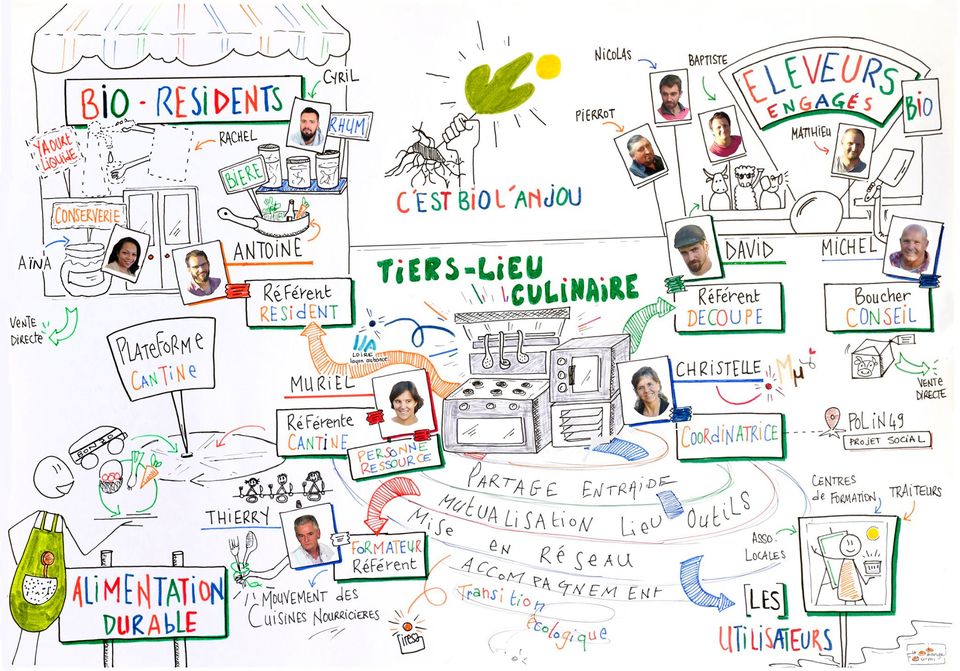 BIO - RESIDENTS
CYRIL
RHUM
RACHEL
YAOURT
LIQUIDE
BIERE
CONSERVERIE
AÏNA
ANTOINE
Référent
RESIDENT
VENTE
DIRECTE
C'EST BIO L'ANJOU
NICOLAS
BAPTISTE
PIERROT
MATTHIEU
ELEVEURS
ENGAGÉS
BIO
DAVID
Référent
DECOUPE
MICHEL
Boucher
CONSEIL
VENTE
DIRECTE
TIERS-LIEU
CULINAIRE
LOIRE
layon aubance
PLATEFORME
CANTINE
MURIEL
Référente
CANTINE
PERSONNE
RESSOURCE
CHRISTELLE
COORDINATRICE
POLIN49
PROJET SOCIAL
PARTAGE ENTRAIDE
MUTUALISATION LIEU OUTILS
MISE EN RÉSEAU
ACCOMPAGNEMENT
Transition
écologique
THIERRY
FORMATEUR
Référent
MOUVEMENT DES
CUISINES NOURRICIERES
ALIMENTATION
DURABLE
CENTRES
de FORMATION
TRAITEURS
ASSO.
LOCALES
[LES]
UTILISATEURS